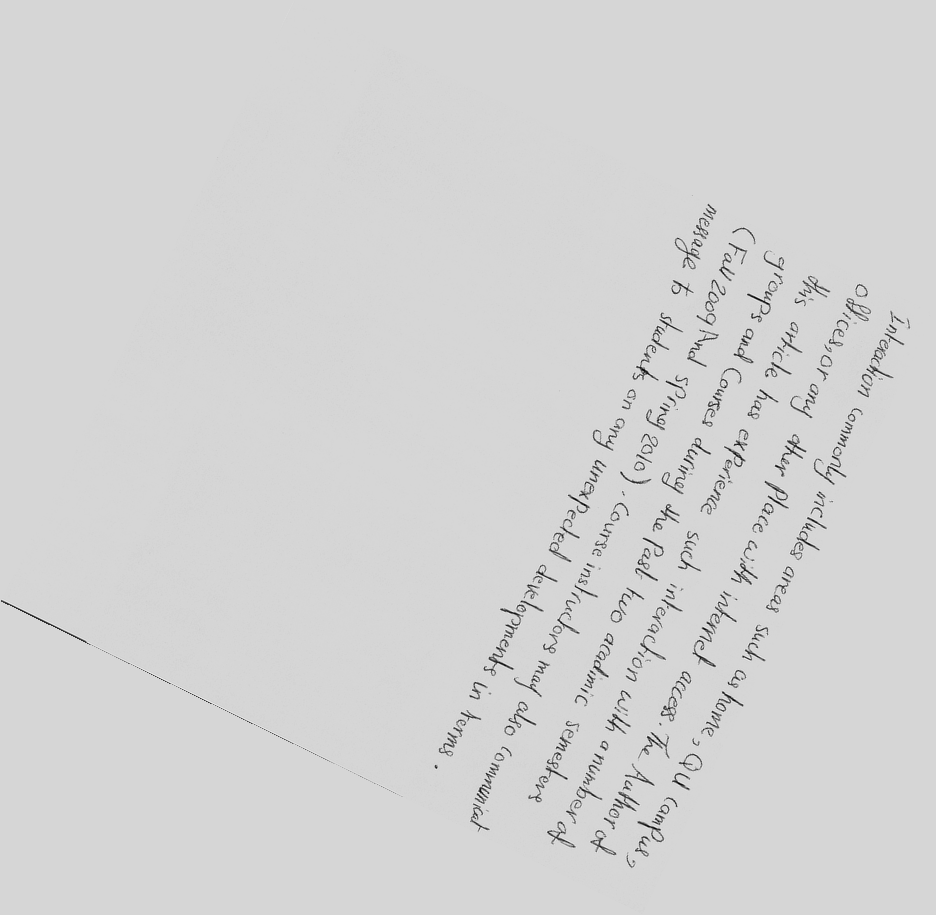 Interaction commonly includes areas such as home, QU campus,
offices, or any other place with internet access. The Author of
this article has experience such interaction with a number of
groups and Courses during the past two acadmic semesters
(Fall 2009 And spring 2010). Course instructors may also communicat
message to students on any unexpected developments in terms.